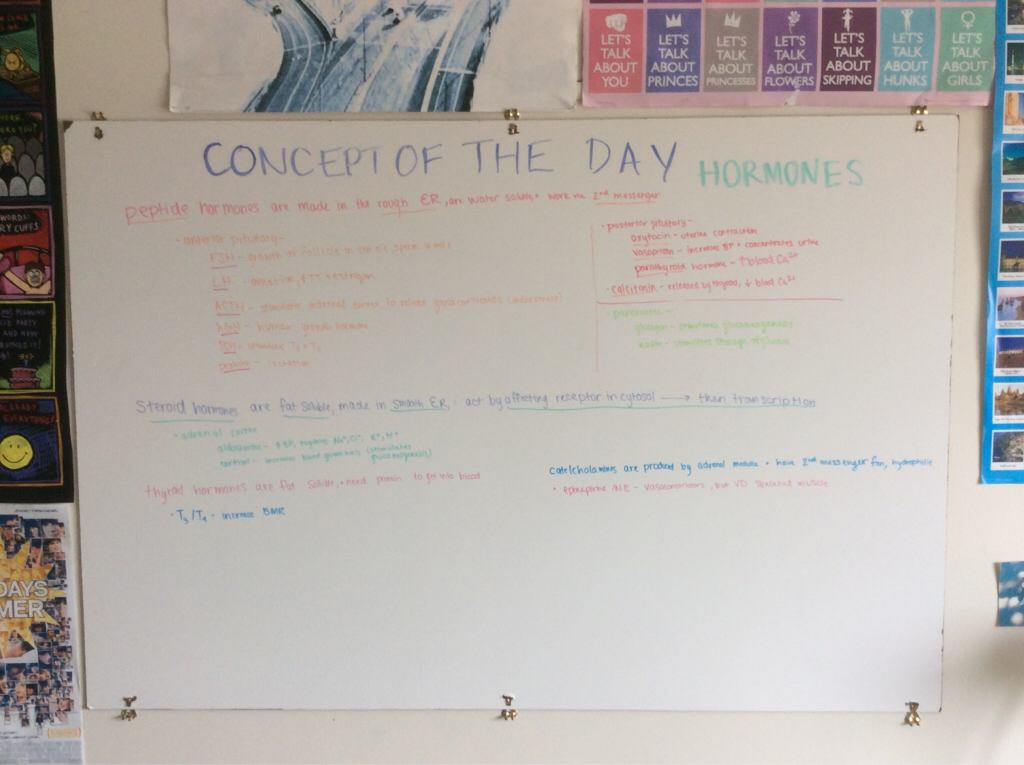 LET'S TALK ABOUT YOU
LET'S TALK ABOUT PRINCES
LET'S TALK ABOUT PRINCESSES
LET'S TALK ABOUT FLOWERS
LET'S TALK ABOUT SKIPPING
LET'S TALK ABOUT HUNKS
LET'S TALK ABOUT GIRLS
CONCEPT OF THE DAY HORMONES
peptide hormones are made in the rough ER, are water soluble + work via 2nd messenger
· anterior pituitary-
FSH - growth of follicle in
LH - ovulation,
ACTH - stimulates adrenal cortex to release glucocorticoids
hGH - human growth hormone
TSH - stimulate T3 + T4
prolactin - lactation
· posterior pituitary-
oxytocin - uterine contraction
vasopressin - increase BP + concentrates urine
parathyroid hormone - ↑ blood Ca2+
· calcitonin - released by thyroid, ↓ blood Ca2+
· pancreatic -
glucagon - stimulates gluconeogenesis
insulin - stimulates storage of glucose
Steroid hormones are fat soluble, made in smooth ER · act by affecting receptor in cytosol → then transcription
· adrenal cortex
aldosterone - ↑ BP, regulate Na+, Cl-, K+, H+
cortisol - increase blood glucose (stimulates gluconeogenesis)
thyroid hormones are fat soluble, + need protein to get into blood
· T3/T4 - increase BMR
catecholamines are produced by adrenal medulla + have 2nd messenger fxn, hydrophilic
· epinephrine /NE - vasoconstrictors, but VD skeletal muscle
CUFFS
PARTY
AND NOW
DAYS
MER